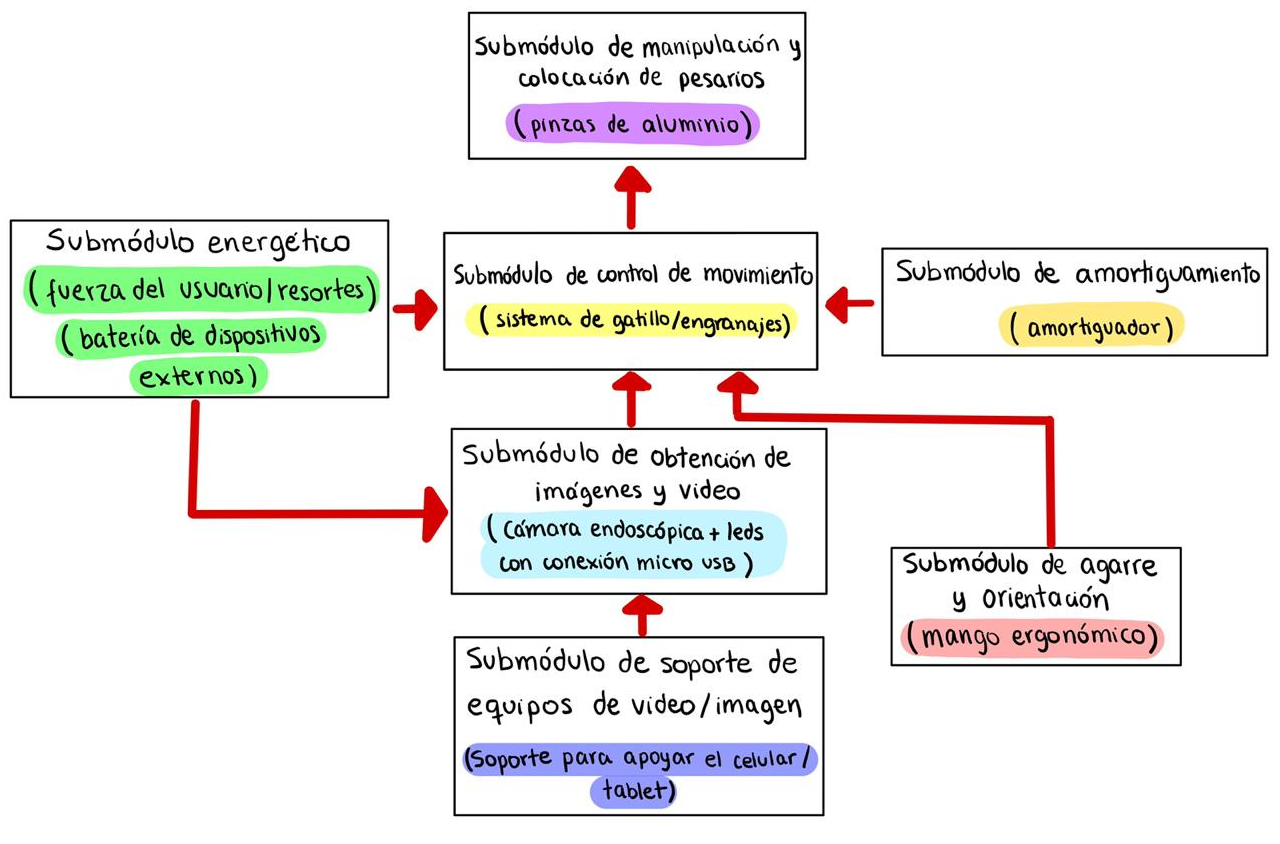 Submódulo de manipulación y
colocación de pesarios
(pinzas de aluminio)
Submódulo energético
(fuerza del usuario/resortes)
(batería de dispositivos
externos)
Submódulo de control de movimiento
(sistema de gatillo/engranajes)
Submódulo de amortiguamiento
(amortiguador)
Submódulo de obtención de
imágenes y video
(Cámara endoscópica + leds
con conexión micro USB)
Submódulo de agarre
y orientación
(mango ergonómico)
Submódulo de soporte de
equipos de video/imagen
(Soporte para apoyar el celular/
tablet)